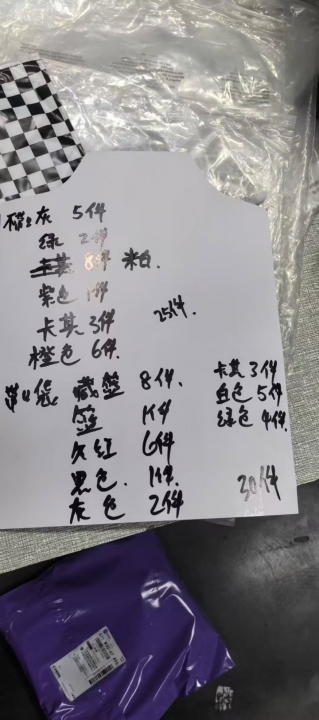 灰 5件
绿 2件
卡其 8件 米白.
紫色 1件
卡其 3件
橙色 6件.
25件.
第4袋 藏蓝 8件.
蓝 1件
灰红 6件
黑色. 1件.
灰色 2件
卡其 3件
白色 5件
绿色 4件.
30件